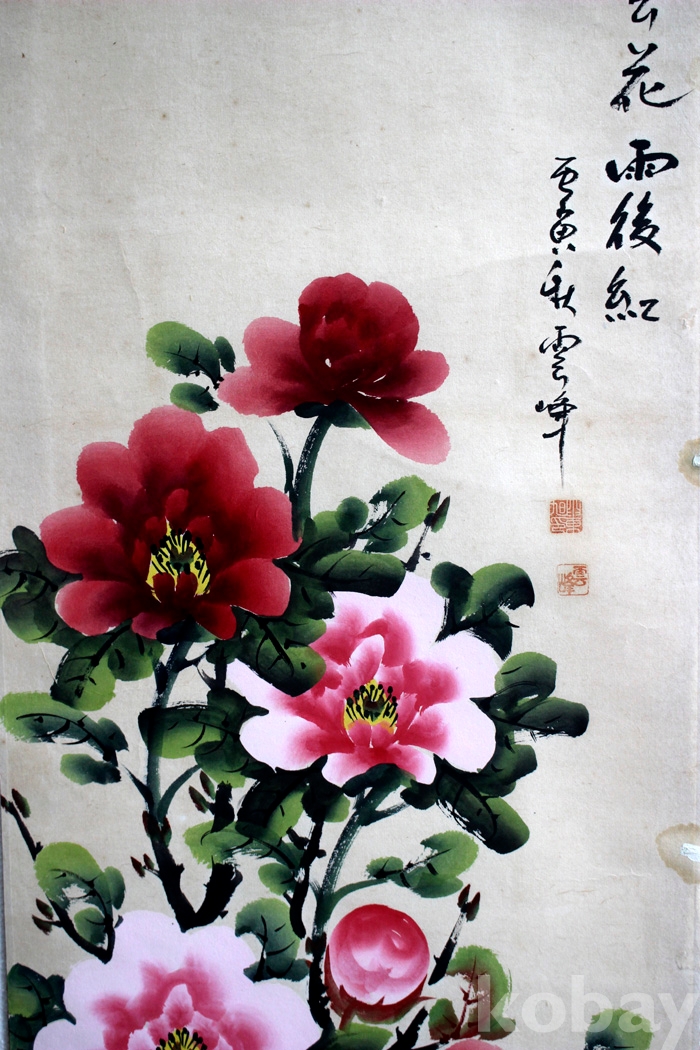 花雨後紅
丙寅秋 雲峰
雲峰
kobay